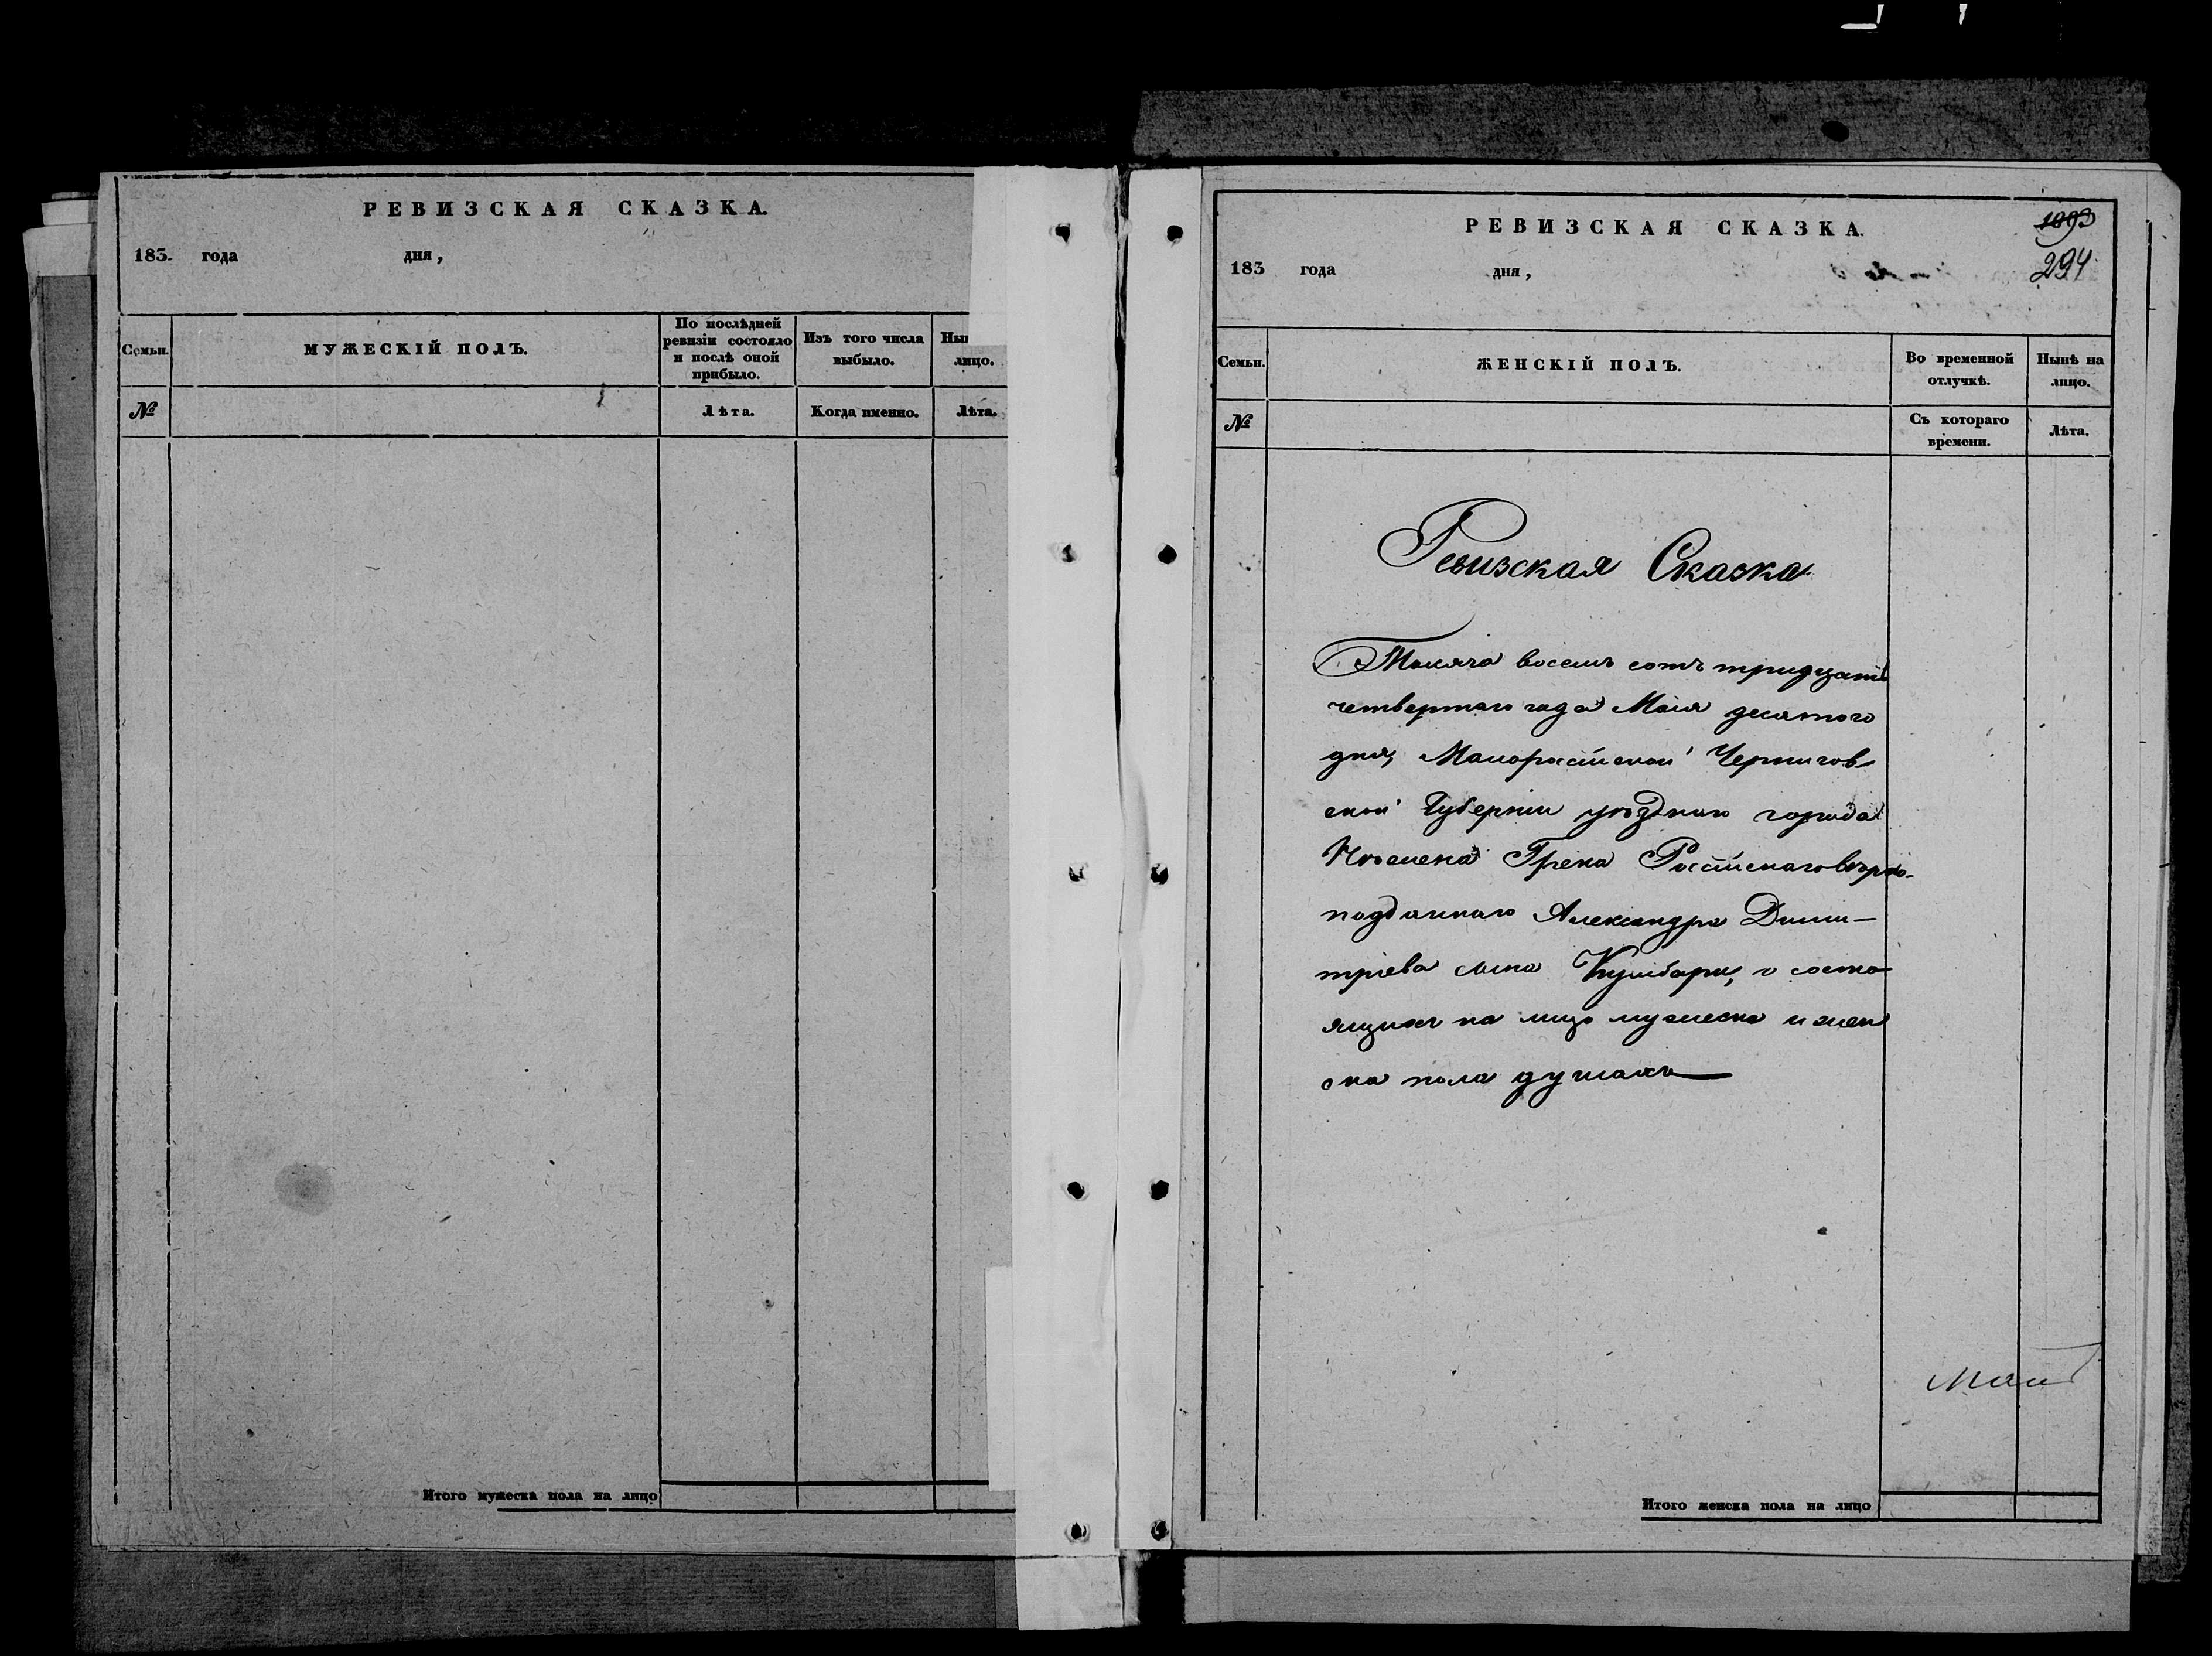 РЕВИЗСКАЯ СКАЗКА.
183. года дня,
Семьи.
МУЖЕСКІЙ ПОЛЪ.
По послѣдней ревизіи состояло и послѣ оной прибыло.
Изъ того числа выбыло.
лицо.
№
Лѣта.
Когда именно.
Лѣта.
Итого мужеска пола на лицо
РЕВИЗСКАЯ СКАЗКА.
294
183 года дня,
Семьи.
ЖЕНСКІЙ ПОЛЪ.
Во временной отлучкѣ.
Нынѣ на лицо.
№
Съ котораго времени.
Лѣта.
Ревизская Сказка
Тысяча восемь сотъ тридцать
четвертаго года Маія десятого
дня, Малоросійской Чернигов-
ской Губерніи уѣзднаго города
Нѣжена Грека Россійскаго вѣрно-
подданнаго Александра Дими-
тріева сына о состо
ящихъ на лицо мужеска и жен
ска пола душахъ
Итого женска пола на лицо